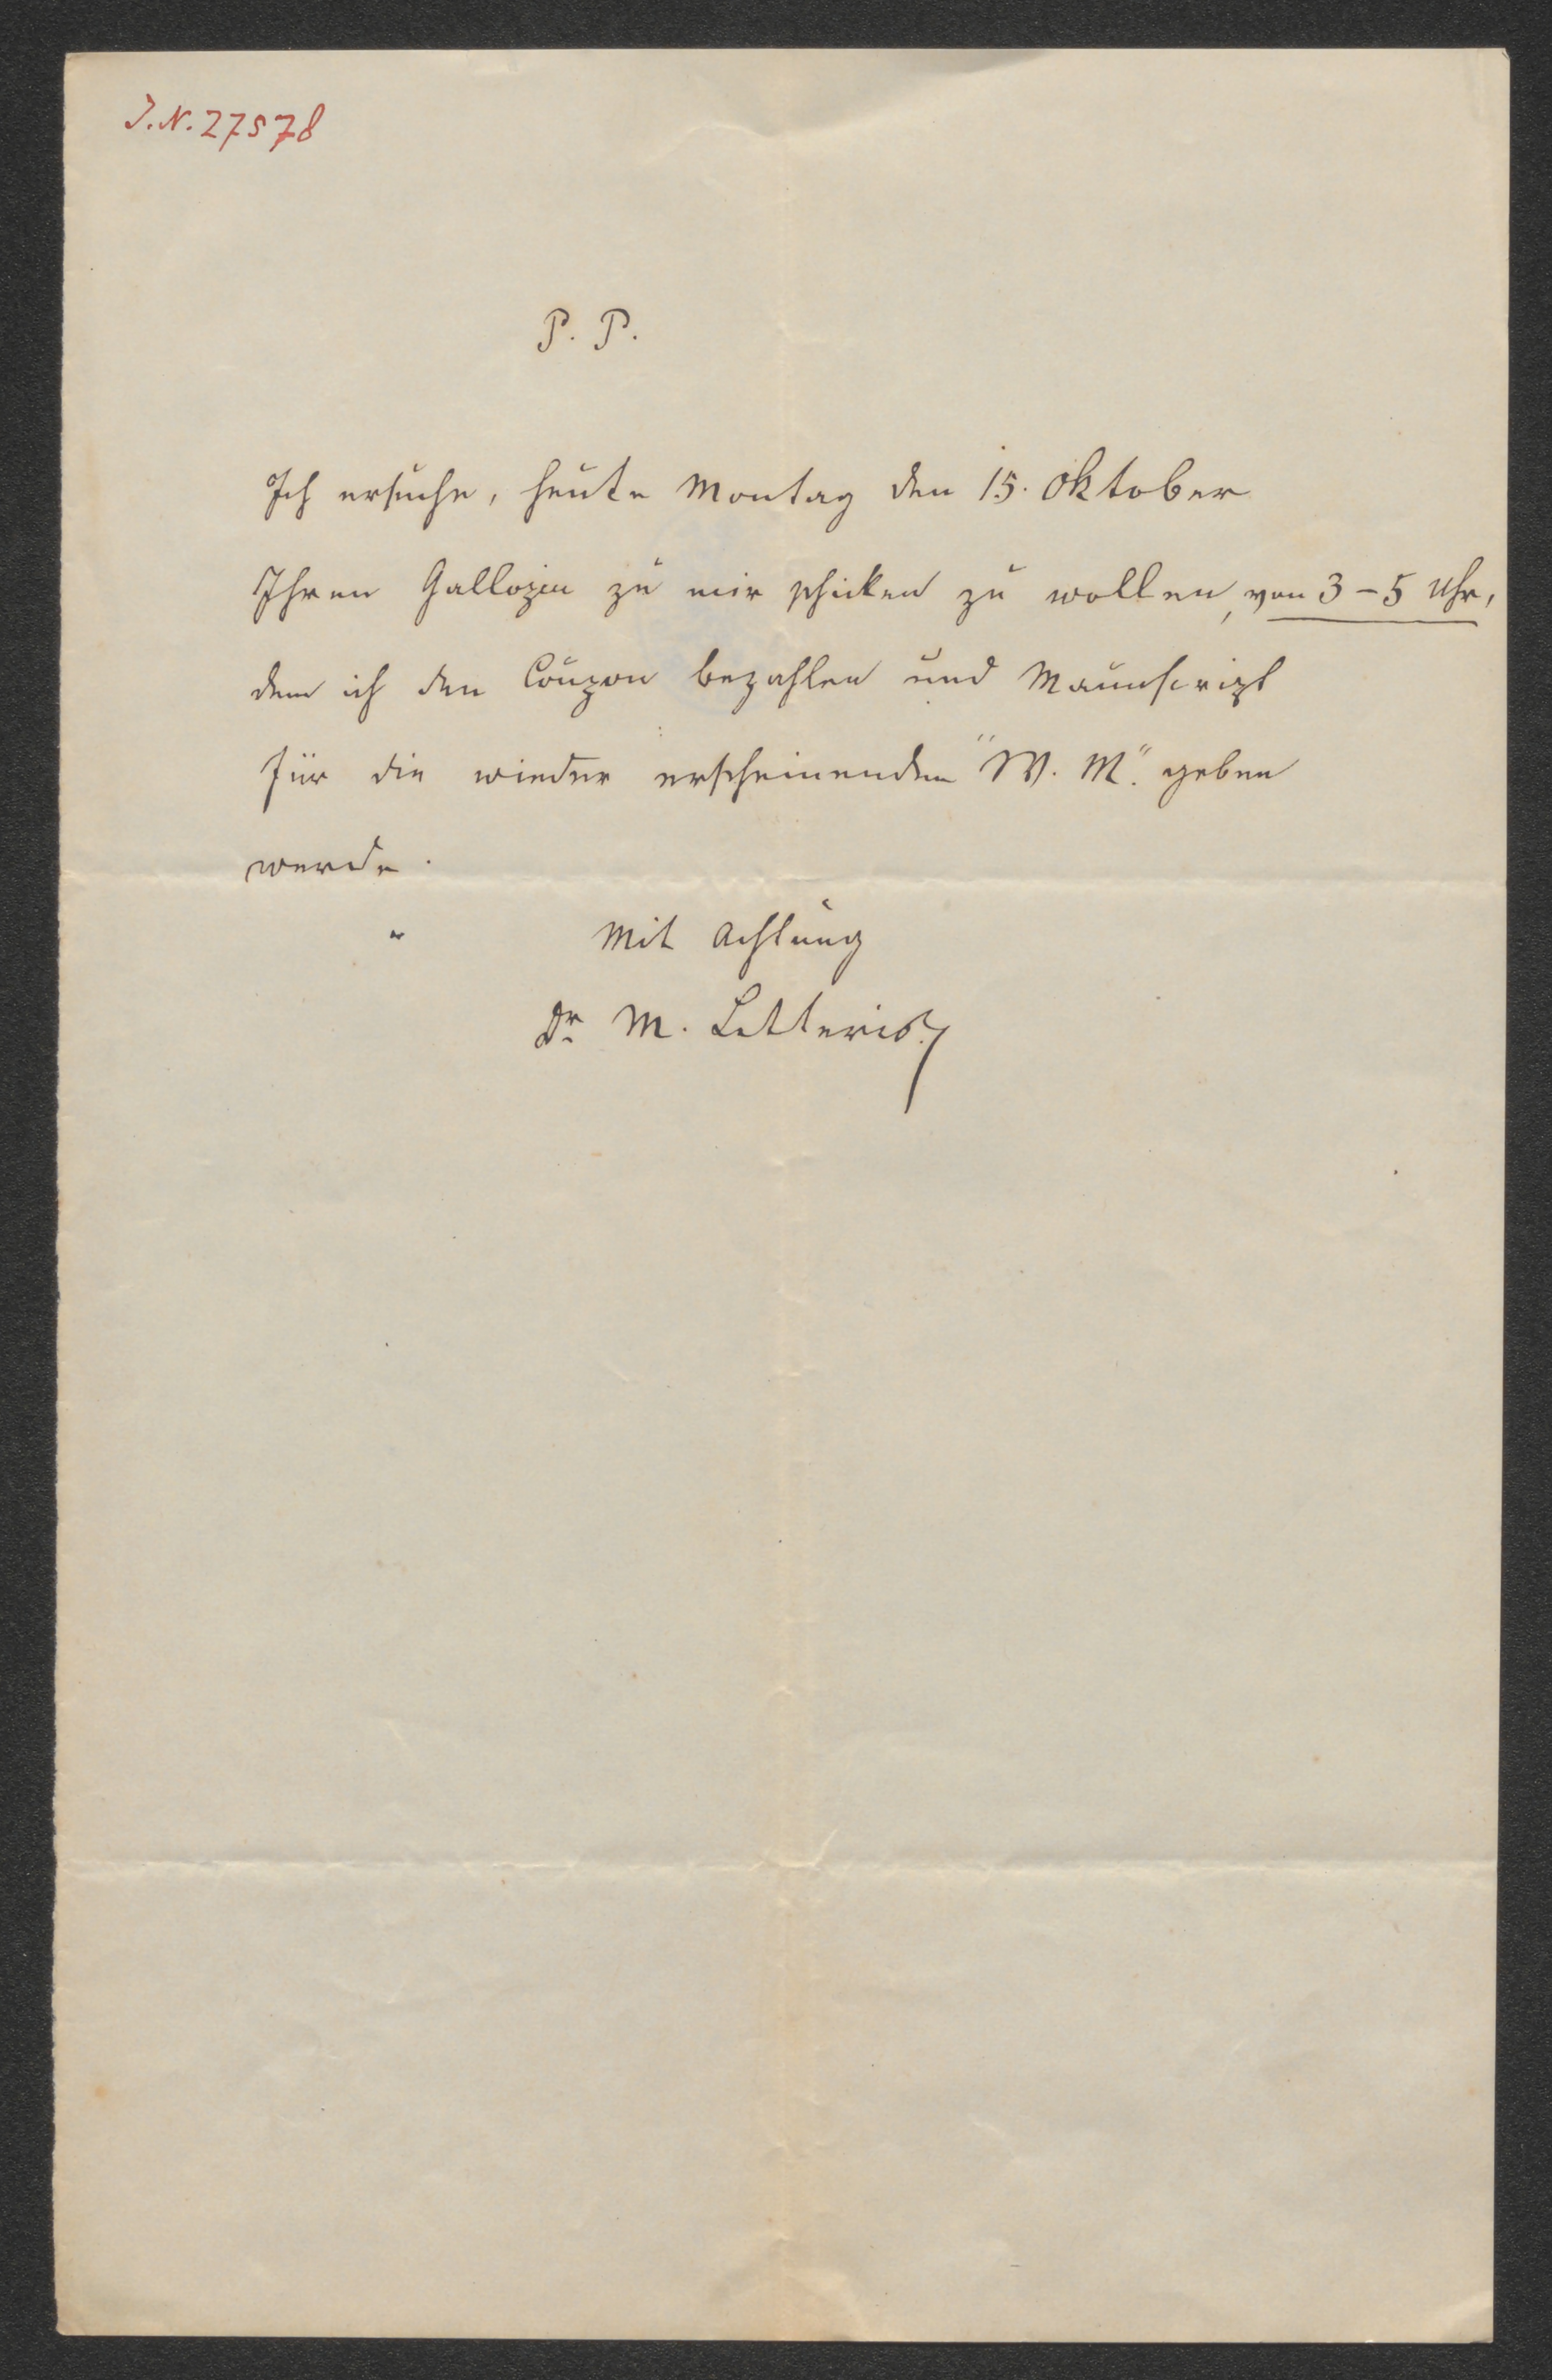 J. N. 27578
P. P.
Ich ersuche, heute Montag den 15. Oktober
Ihren Gallopin zu mir schicken zu wollen, von 3–5 Uhr,
dem ich den Coupon bezahlen und Manuscript
für die wieder erscheinenden "W. M." geben
werde.
Mit Achtung
Dr M. Letteris